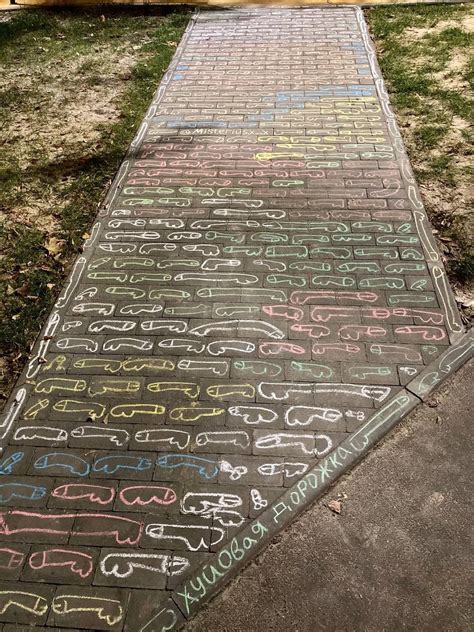 @Misteriosx.x
хуйовая дорожка